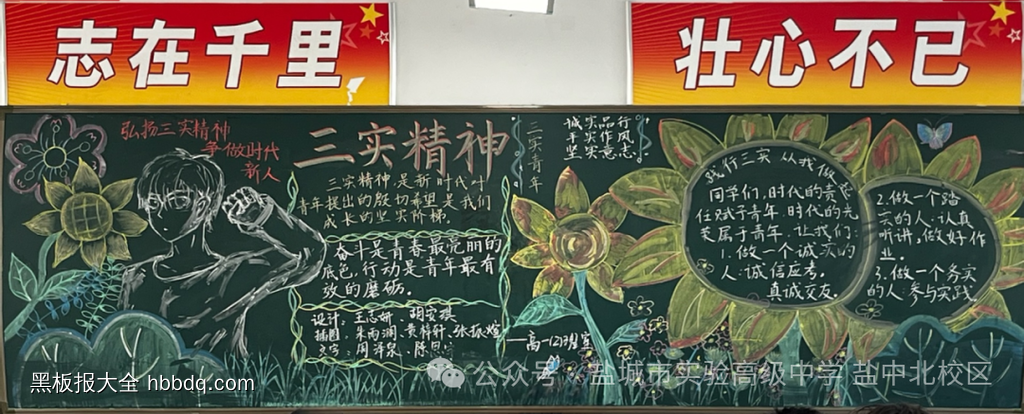 志在千里
壮心不已
弘扬三实精神
争做时代
新人
三实精神
三实精神是新时代对
青年提出的殷切希望是我们
成长的坚实阶梯。
奋斗是青春最亮丽的
底色,行动是青年最有
效的磨砺。
设计:王志妍、胡安琪
插图:朱雨润、黄梓轩、张振
文字:周泽泉、陈
三实青年
诚实品行
手实作风
坚实意志
高一(4)班宣
践行三实 从我做起
同学们,时代的责
任赋于青年,时代的光
荣属于青年,让我们:
1.做一个诚实的
人:诚信应考。
真诚交友。
2.做一个踏
实的人:认真
听讲,做好作
业。
3.做一个务实
的人:参与实践
黑板报大全 hbbdq.com
公众号 盐城市实验高级中学 盐中北校区